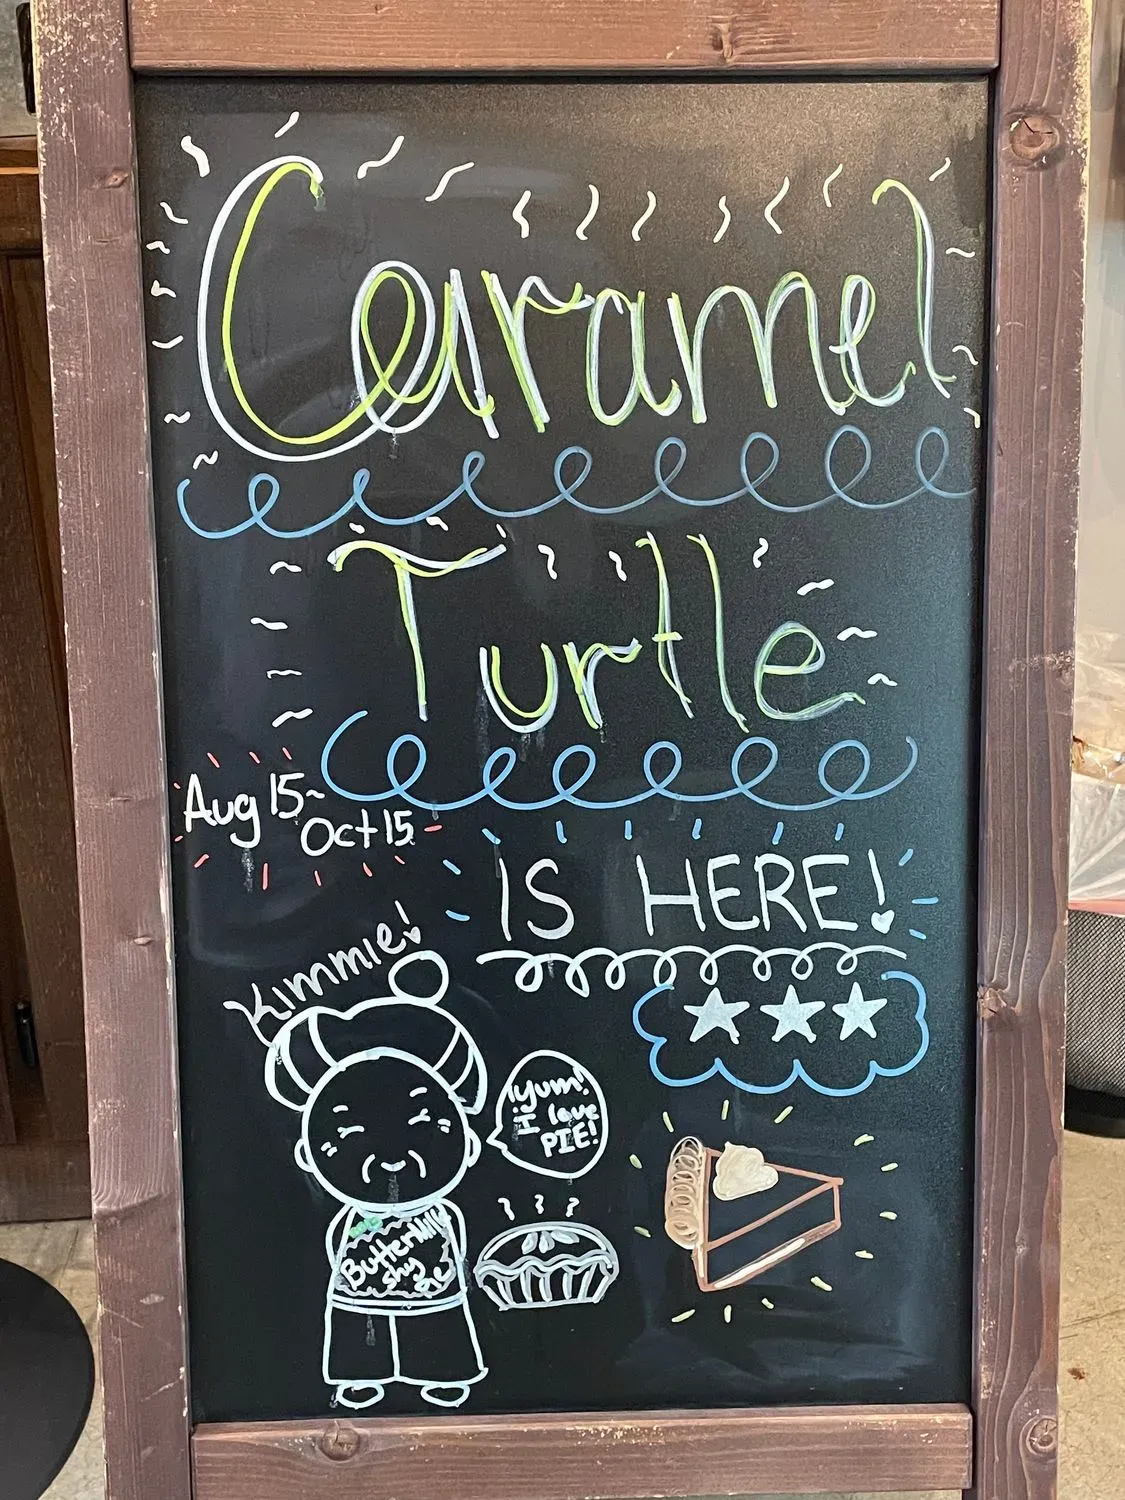 Caramel
Turtle
Aug 15~
Oct 15
IS HERE!
Kimmie!
Yum!
I love
PIE!